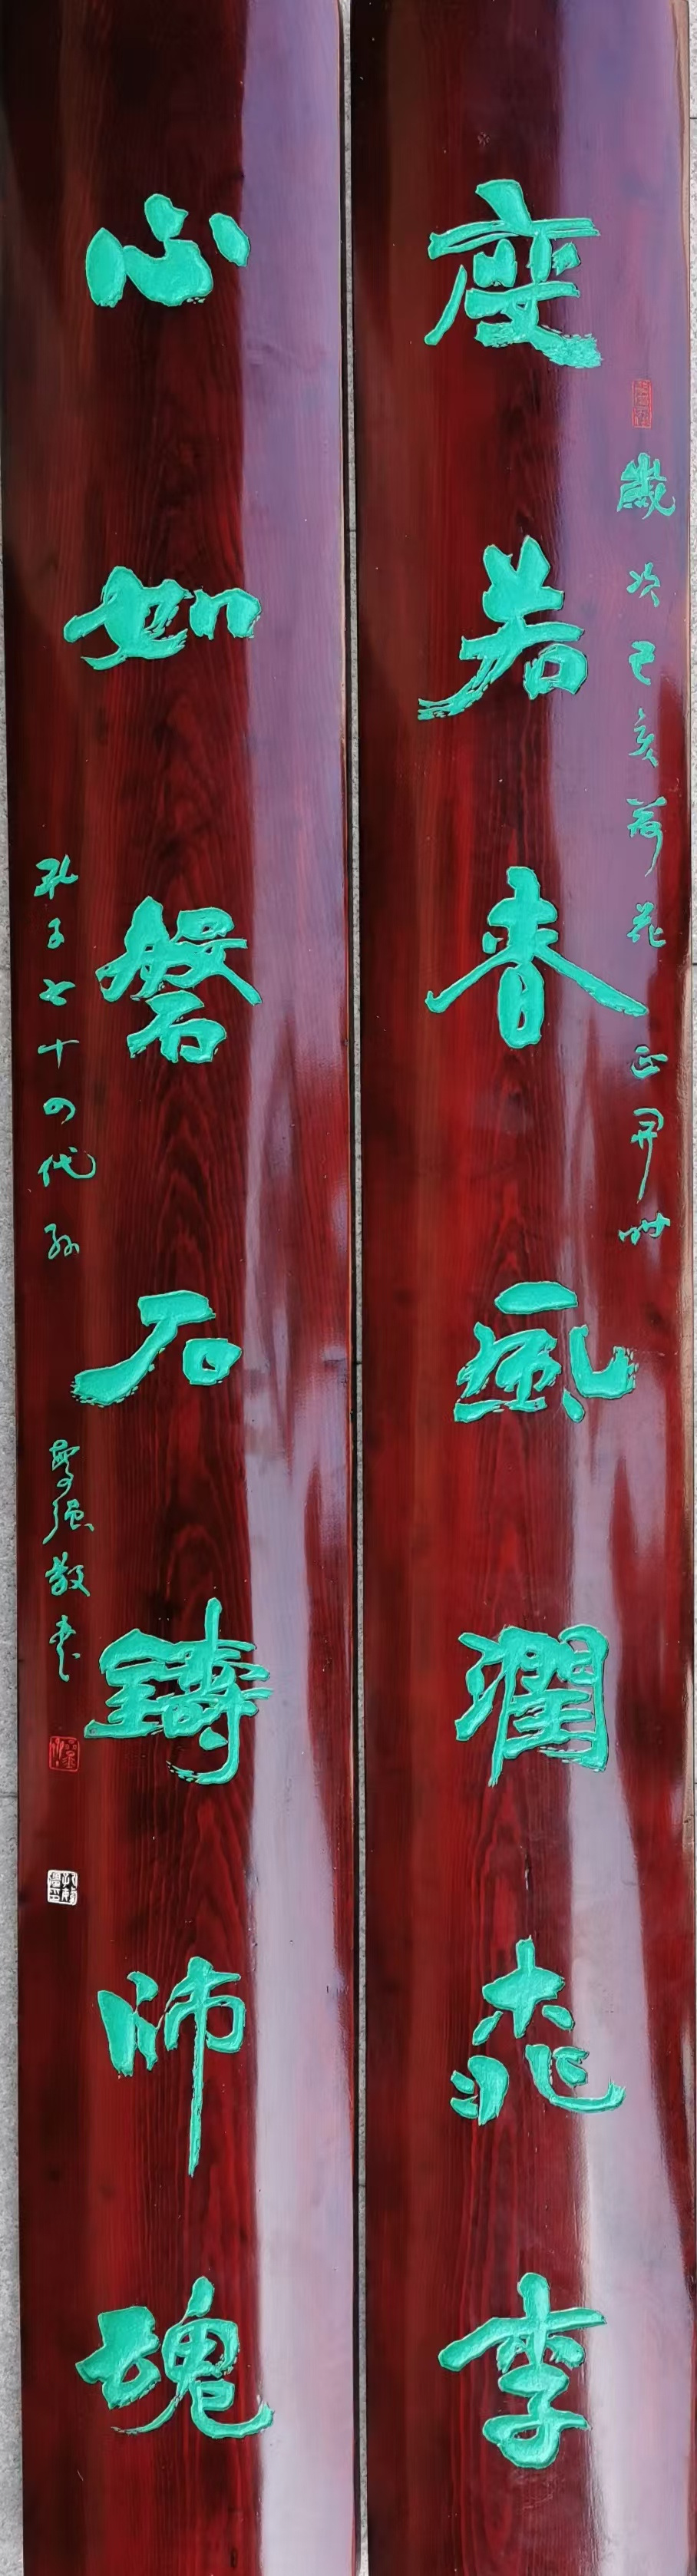 度若春風潤桃李
歲次己亥荷花正開時
心如磐石鑄師魂
孔子七十四代孫
强敬書